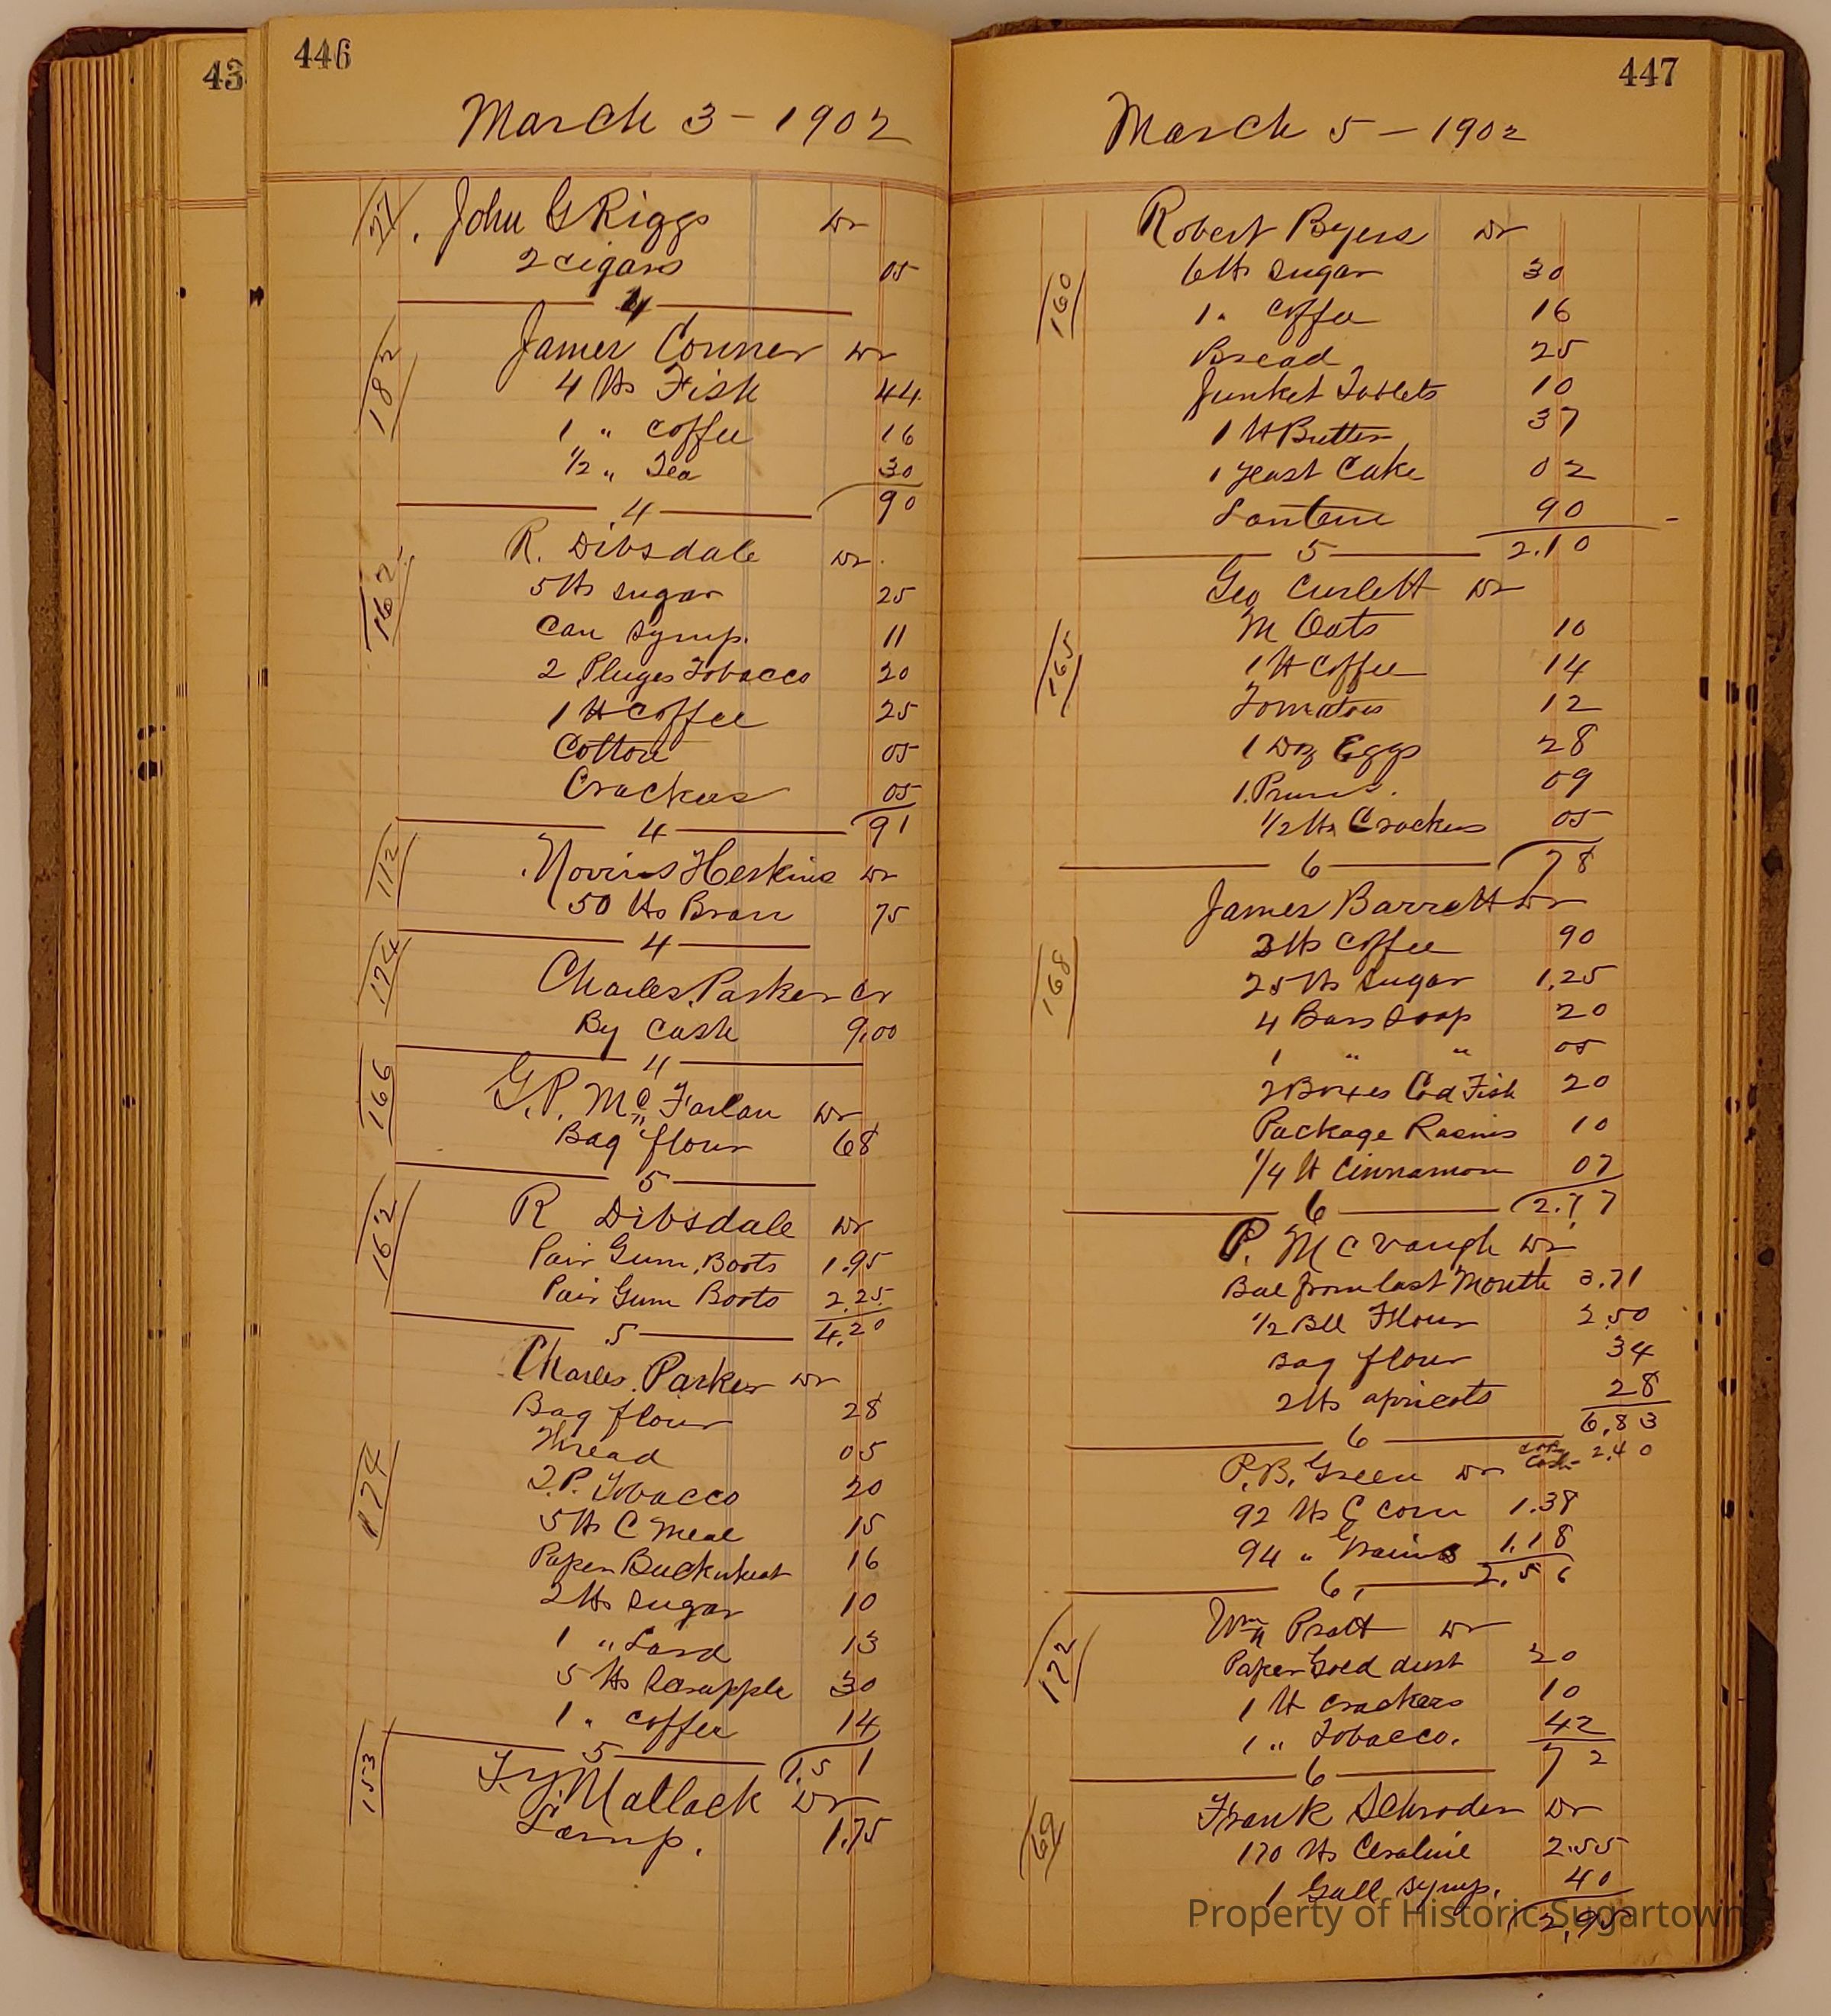 43
446
March 3 - 1902
27
John G Riggs Dr
2 cigars 05
4
182
James Conner Dr
4 lbs Fish 44
1 " Coffee 16
1/2 " Tea 30
4 90
162
R. Dibsdale Dr.
5 lbs sugar 25
Can Syrup. 11
2 Pluges Tobacco 20
1 lb Coffee 25
Cotton 05
Crackers 05
4 91
112
Norris Heskins Dr
50 lbs Bran 75
4
174
Charles Parker Cr
By Cash 9.00
4
166
G. P. Mc Farlan Dr
Bag flour 68
5
162
R Dibsdale Dr
Pair Gum Boots 1.95
Pair Gum Boots 2.25
5 4.20
Charles Parker Dr
Bag flour 28
Thread 05
174
2. P. Tobacco 20
5 lbs C Meal 15
Paper Buckwheat 16
2 lbs sugar 10
1 " Lard 13
5 lbs Scrapple 30
1 " Coffee 14
5 1.51
153
Matlack Dr
Lamp. 1.75
447
March 5 - 1902
Robert Byers Dr
160
6 lbs sugar 30
1 " Coffee 16
Bread 25
Junket Tablets 10
1 lb Butter 37
1 yeast Cake 02
Lantern 90
5 2.10
Geo Curlett Dr
165
M Oats 10
1 lb Coffee 14
Tomatoes 12
1 Doz Eggs 28
1. Pruns. 09
1/2 lbs Crackers 05
6 78
James Barrett Dr
168
3 lbs Coffee 90
25 lbs sugar 1.25
4 Bars Soap 20
1 " " 05
2 Boxes Cod Fish 20
Package Rasins 10
1/4 lb Cinnamon 07
6 2.77
P. McVaugh Dr
Bal from last Month 3.71
1/2 Bll Flour 2.50
Bag flour 34
2 lbs apricots 28
6.83
6
P. B. Green Dr Cash 2.40
92 lbs C corn 1.38
94 " 1.18
6 2.56
172
Wm Pratt Dr
Paper Gold dust 20
1 lb crackers 10
1 " Tobacco. 42
6 72
69
Frank Schroder Dr
170 lbs Ceraline 2.55
1 Gall syrup. 40
2.95
Property of Historic Sugartown